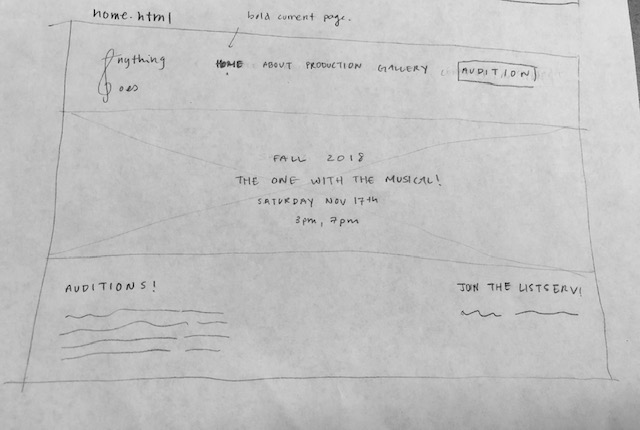 home.html
bold current page.
nything
oes
HOME ABOUT PRODUCTION GALLERY AUDITION
FALL 2018
THE ONE WITH THE MUSICAL!
SATURDAY NOV 17th
3pm, 7pm
AUDITIONS!
JOIN THE LISTSERV!